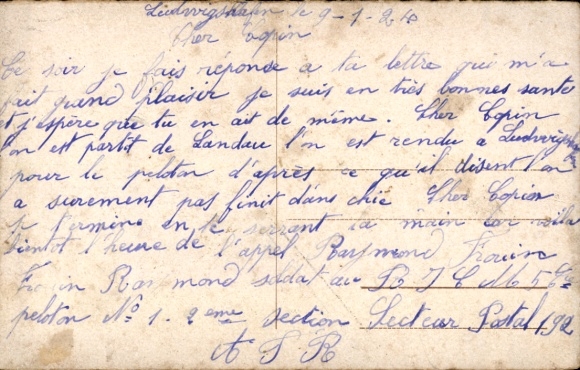 Ludwigshafen le 9-1-24
Cher Copin
Ce soir je fais réponse a ta lettre qui m'a
fait grand plaisir je suis en très bonnes sante
et j'espère que tu en ait de même. Cher Copin
l'on est partit de Landau l'on est rendu a Ludwigshafen
pour le peloton d'après ce qu'il disent l'on
a surement pas finit dans chie Cher Copin
je termine en te serrant la main car voila
bientot l'heure de l'appel Raymond Frouin
Frouin Raymond soldat au R I C M 5 Cie
peloton No 1. 2eme section Secteur Postal 192
A F R